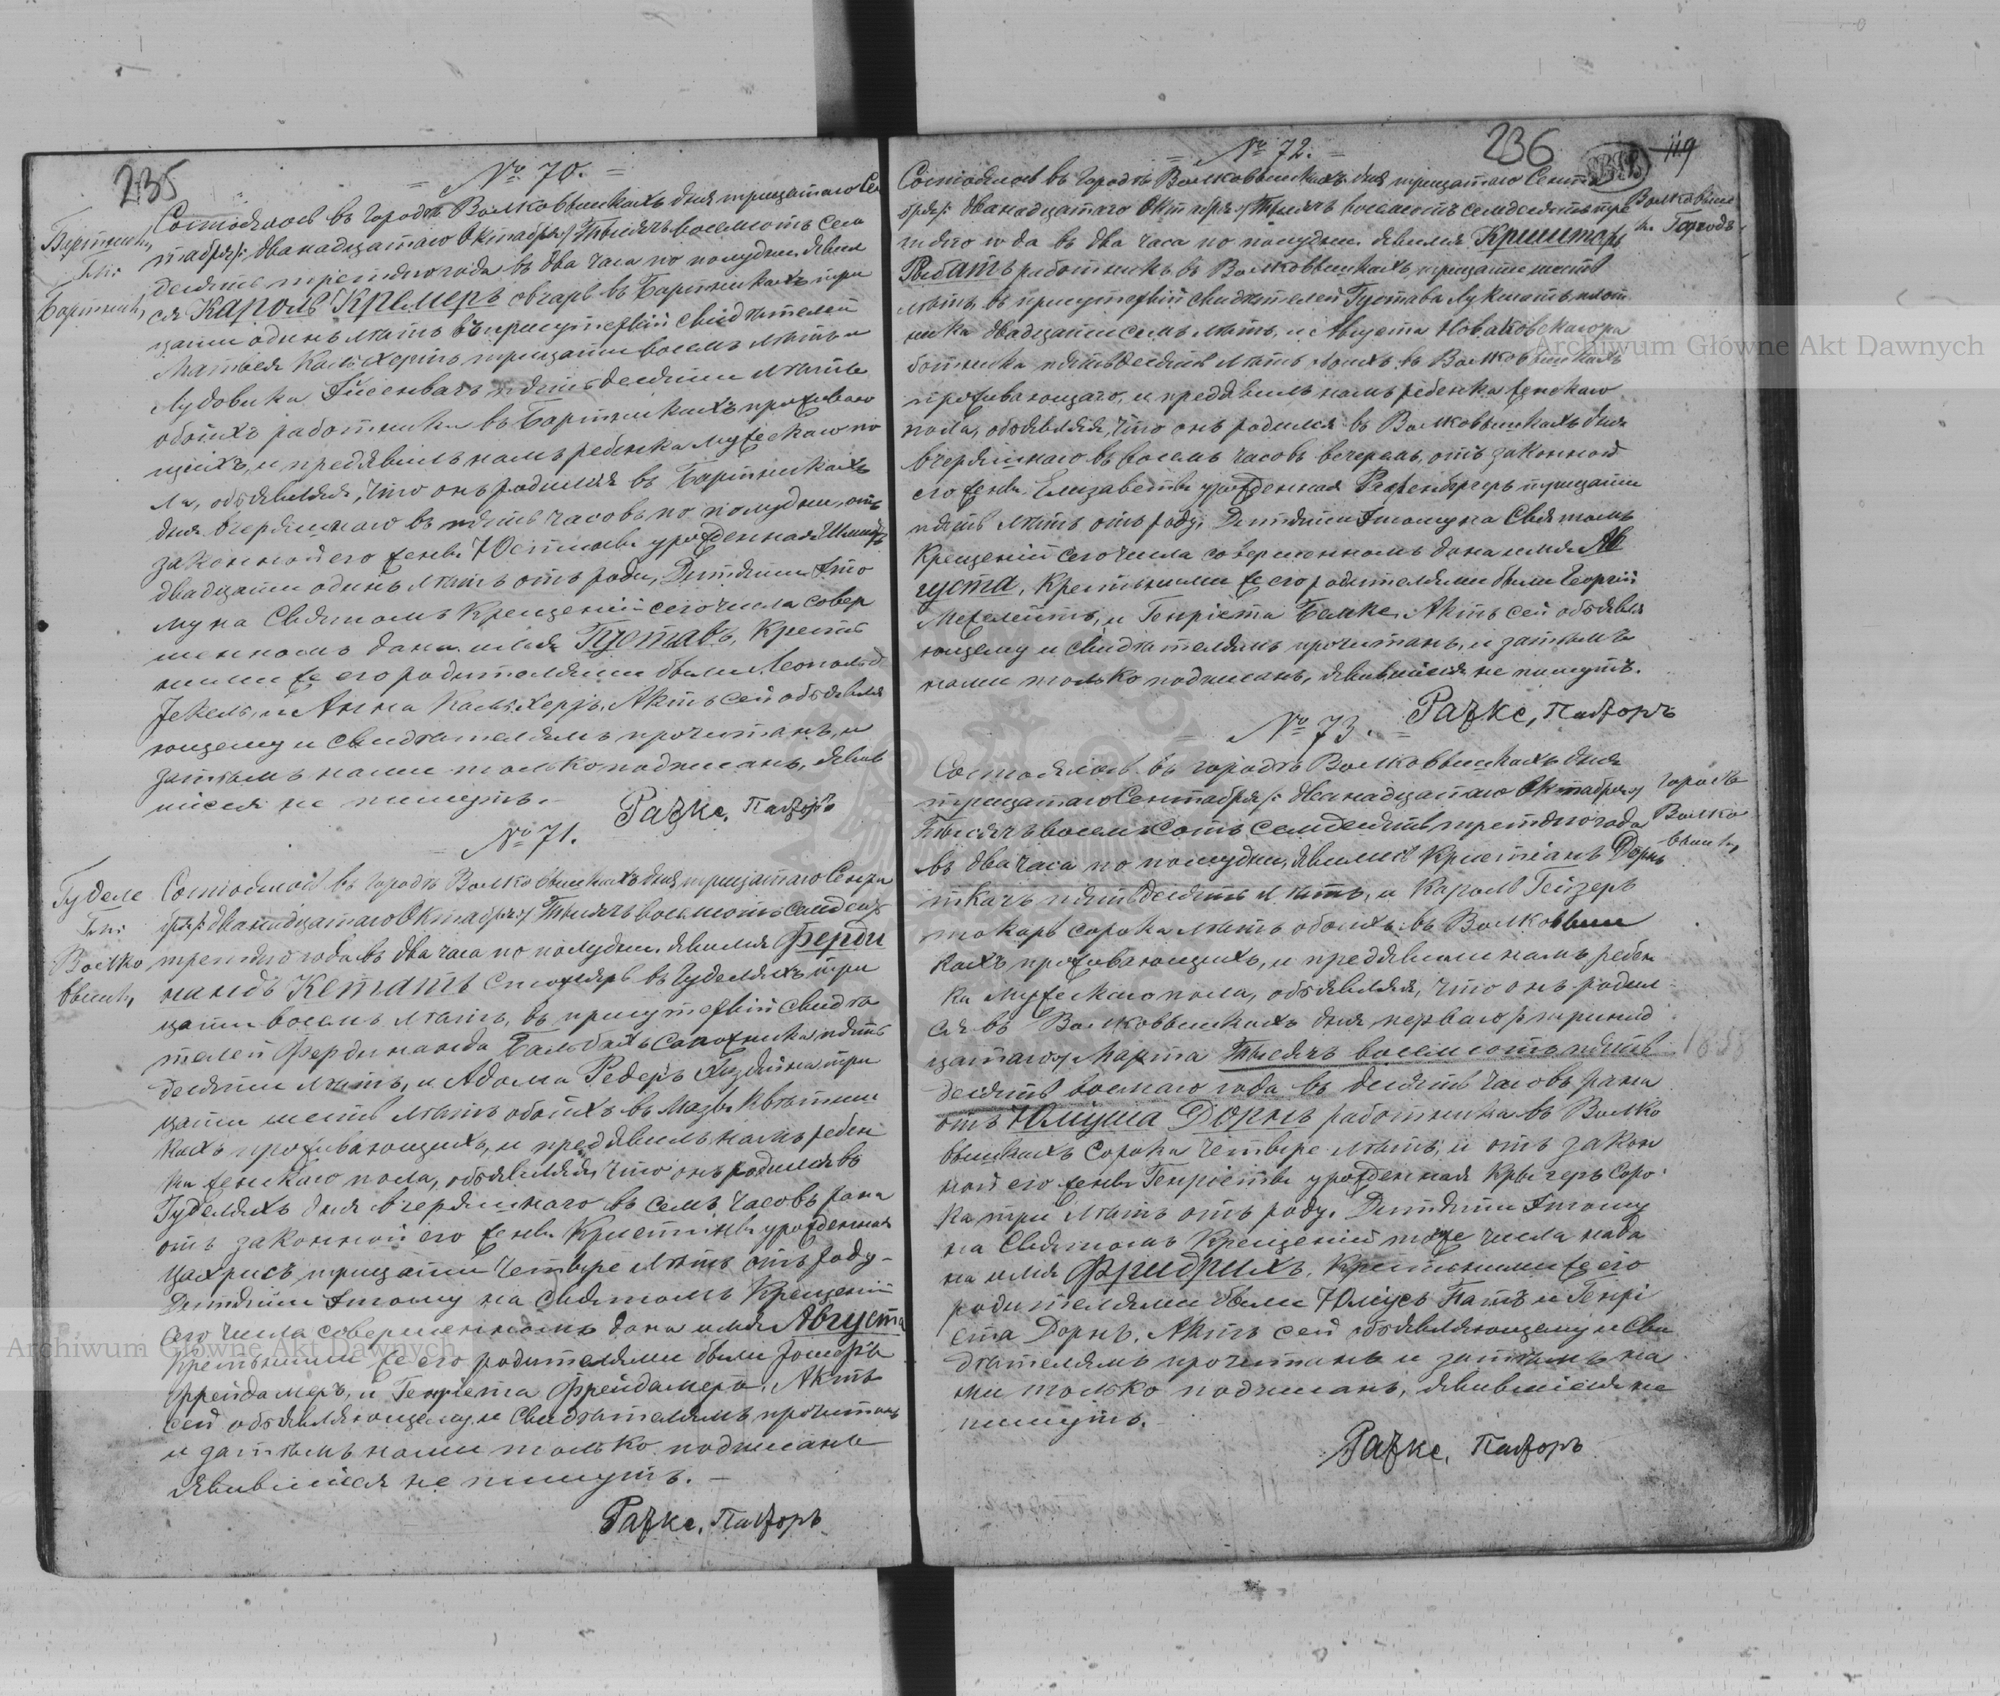 235
№ 70.
Бартники
Гм:
Бартники
Состоялось въ городѣ Волковышкахъ дня тридцатаго Сен
тября /: двѣнадцатаго Октября :/ Тысяча восемьсотъ семь
десятъ третьяго года въ два часа по полудни. Явил
ся Кароль Кремеръ овчаръ въ Бартникахъ три
дцати одинъ лѣтъ въ присутствіи свидѣтелей
Матвея тридцати восемь лѣтъ и
Лудовика пятьдесяти лѣтъ
обоихъ работники въ Бартникахъ прожываю
щихъ, и предявилъ намъ ребенка мужескаго по
ла, объявляя, что онъ родился въ Бартникахъ
дня вчерашнаго въ пять часовъ по полудни, отъ
законной его жены Юстины урожденная Шмидтъ
двадцати одинъ лѣтъ отъ роду, Дитяти этo
му на Святомъ Крещеніи сего числа совер
шенномъ дано имя Густавъ, Крестн
ыми же его родителями были Леопольд
Жекель, и Анна Акть сей объявля
ющему и свидѣтелямъ прочитанъ, и
затѣмъ нами только подписанъ, явив
шіеся не пишутъ. –
Разке, Пасторъ
№ 71.
Гуделе
Гм:
Волко
вышк,
Состоялось въ городѣ Волковышкахъ дня тридцатаго Сентя
бря /: двѣнадцатаго Октября :/ Тысяча восемьсотъ семьдесятъ
третьяго года въ два часа по полудни. Явился Ферди
нандъ Кетатъ столяръ въ Гуделяхъ три
дцати восемь лѣтъ, въ присутствіи свидѣ
телей Фердинанда Бальбахъ сапожника пять
десяти лѣтъ, и Адама Редеръ хозяина три
дцати шесть лѣтъ обоихъ въ
кахъ прожывающихъ, и предявилъ намъ ребен
ка женскаго пола, объявляя, что онъ родился въ
Гуделяхъ дня вчерашнаго въ семь часовъ рана
отъ законной его жены Кристины урожденная
Цахрисъ тридцати четыре лѣтъ отъ роду –
Дитяти этому на Святомъ Крещеніи
сего числа совершенномъ дано имя Августа
Крестными же его родителями были
Фрейдамеръ, и Генріета Фрейдамеръ. Актъ
сей объявляющему и свидѣтелямъ прочитанъ
и затѣмъ нами только подписанъ
явившіеся не пишутъ. –
Разке, Пасторъ
№ 72.
236
119
Волковыш
ки Городъ
Состоялось въ городѣ Волковышкахъ дня тридцатаго Сентя
бря /: двѣнадцатаго Октября :/ Тысяча восемьсотъ семдесятъ тре
тьяго года въ два часа по полудни. Явился Криштофъ
Рыбатъ работникъ въ Волковышкахъ тридцати шесть
лѣтъ, въ присутствіи свидѣтелей Густава плот
ника двадцати семь лѣтъ, и Августа Новаковскаго ра
ботника пятьдесятъ лѣтъ обоихъ въ Волковышкахъ
прожывающаго, и предявилъ намъ ребенка женскаго
пола, объявляя, что онъ родился въ Волковышкахъ дня
вчерашнаго въ восемь часовъ вечеромъ, отъ законной
его жены Елизаветы урожденная тридцати
пять лѣтъ отъ роду, Дитяти этому на Святомъ
Крещеніи сего числа совершенномъ дано имя Ав
густа, Крестными же его родителями были Георгій
и Генріета Акть сей объявля
ющему и свидѣтелямъ прочитанъ, и затѣмъ
нами только подписанъ, явившіеся не пишутъ.
Разке, Пасторъ
№ 73.
Городъ
Волко
вышк,
Состоялось въ городѣ Волковышкахъ дня
тридцатаго Сентября /: двѣнадцатаго Октября :/
Тысяча восемьсотъ семдесятъ третьяго года
въ два часа по полудни, явились Кристіанъ Дорнъ
ткачъ пятьдесятъ лѣтъ, и Кароль Гейзеръ
токаръ сорока лѣтъ обоихъ въ Волковыш
кахъ прожывающихъ, и предявили намъ ребен
ка мужескаго пола, объявляя, что онъ родил
ся въ Волковышкахъ дня перваго /: тринад
цатаго :/ Марта Тысяча восемьсотъ пять
десятъ восмаго года въ десять часовъ рана
1858
отъ Юліуша Дорнъ работника въ Волко
вышкахъ сорока четыре лѣтъ, и отъ закон
ной его жены Генріеты урожденная Кригеръ соро
ка три лѣтъ отъ роду. Дитяти этому
на Святомъ Крещеніи тоже числа нада
на имя Фридрихъ. Крестными же его
родителями были Юліусъ и Генрі
ета Дорнъ. Актъ сей объявляющему и сви
дѣтелямъ прочитанъ и затѣмъ на
ми только подписанъ, явившіеся не
пишутъ. –
Разке, Пасторъ
Archiwum Główne Akt Dawnych
Archiwum Główne Akt Dawnych